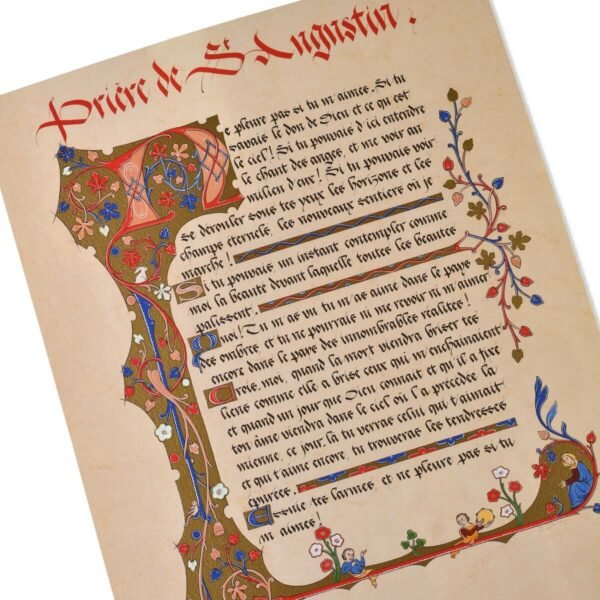 Prière de St Augustin.
Ne pleure pas si tu m'aimes. Si tu
savais le don de Dieu et ce qui est
le ciel! Si tu pouvais d'ici entendre
le chant des anges, et me voir au
milieu d'eux! Si tu pouvais voir
se dérouler sous tes yeux les horizons et les
champs éternels, les nouveaux sentiers où je
marche!
Si tu pouvais, un instant contempler comme
moi la beauté devant laquelle toutes les beautés
pâlissent.
Quoi! Tu m'as vu tu m'as aimé dans le pays
des ombres et tu ne pourrais ni me revoir ni m'aimer
encore dans le pays des innombrables réalités!
Crois-moi, quand la mort viendra briser tes
liens comme elle a brisé ceux qui m'enchaînaient
et quand un jour que Dieu connaît et qu'il a fixé
ton âme viendra dans le ciel où l'a précédée la
mienne, ce jour là tu verras celui qui t'aimait
et qui t'aime encore, tu trouveras les tendresses
épurées.
Essuie tes larmes et ne pleure pas si tu
m'aimes!